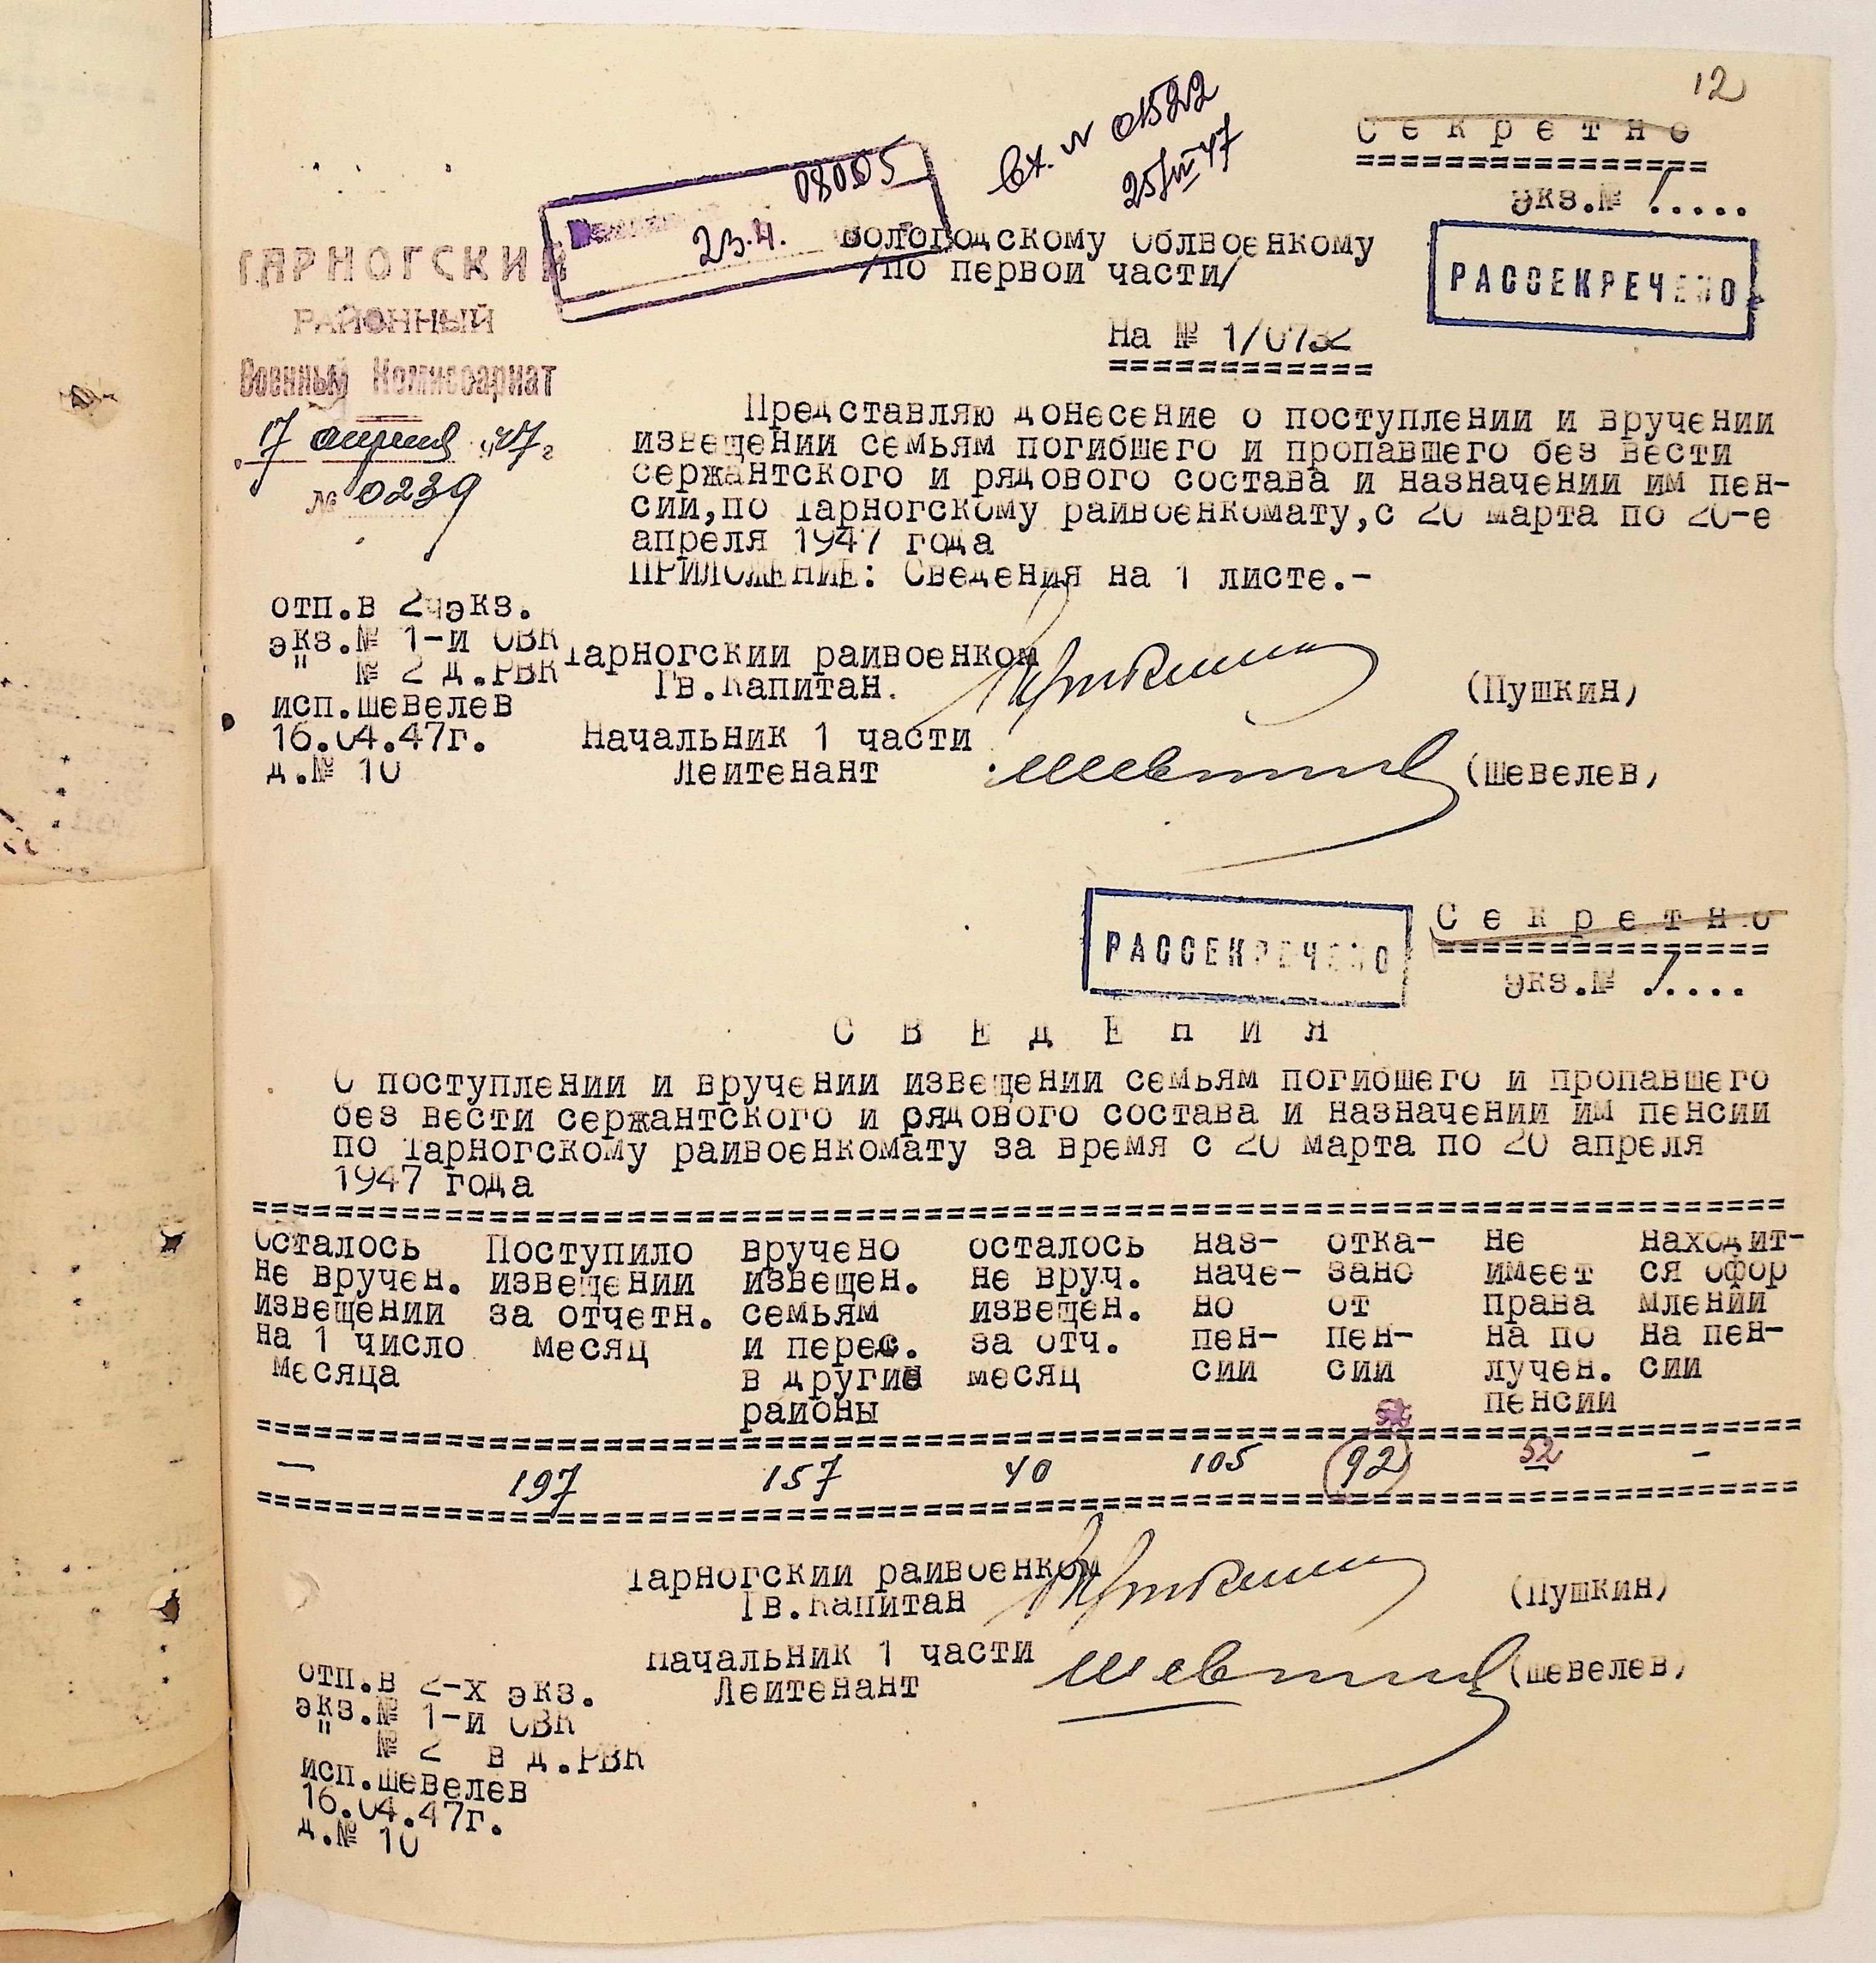 12
Секретно
экз.№ 1.....
Вх. № 01522
25/IV 47
08005
23.4.
Вологодскому Облвоенкому
/по первой части/
РАССЕКРЕЧЕНО
ТАРНОГСКИЙ
РАЙОННЫЙ
Военный Комиссариат
17 апреля 1947 г
№ 0239
На № 1/0732
Представляю донесение о поступлении и вручении
извещении семьям погибшего и пропавшего без вести
сержантского и рядового состава и назначении им пен-
сии,по Тарногскому раивоенкомату,с 20 марта по 20-е
апреля 1947 года
ПРИЛОЖЕНИЕ: Сведения на 1 листе.-
отп.в 2чэкз.
экз.№ 1-и ОВК
" № 2 д.РВК
исп.Шевелев
16.04.47г.
д.№ 10
Тарногскии раивоенком
Гв.Капитан.
(Пушкин)
Начальник 1 части
Леитенант
(Шевелев)
РАССЕКРЕЧЕНО
Секретно
экз.№ 1....
СВЕДЕНИЯ
О поступлении и вручении извещении семьям погибшего и пропавшего
без вести сержантского и рядового состава и назначении им пенсии
по Тарногскому раивоенкомату за время с 20 марта по 20 апреля
1947 года
Осталось Поступило вручено осталось наз- отка- не находит-
не вручен. извещении извещен. не вруч. наче- зано имеет ся офор
извещении за отчетн. семьям извещен. но от права млении
на 1 число месяц и перес. за отч. пен- пен- на по на пен-
месяца в другие месяц сии сии лучен. сии
раионы пенсии
— 197 157 40 105 92 52 -
Тарногскии раивоенком
Гв.Капитан
(Пушкин)
Начальник 1 части
Леитенант
(Шевелев)
отп.в 2-х экз.
экз.№ 1-и ОВК
" № 2 в д.РВК
исп.Шевелев
16.04.47г.
д.№ 10